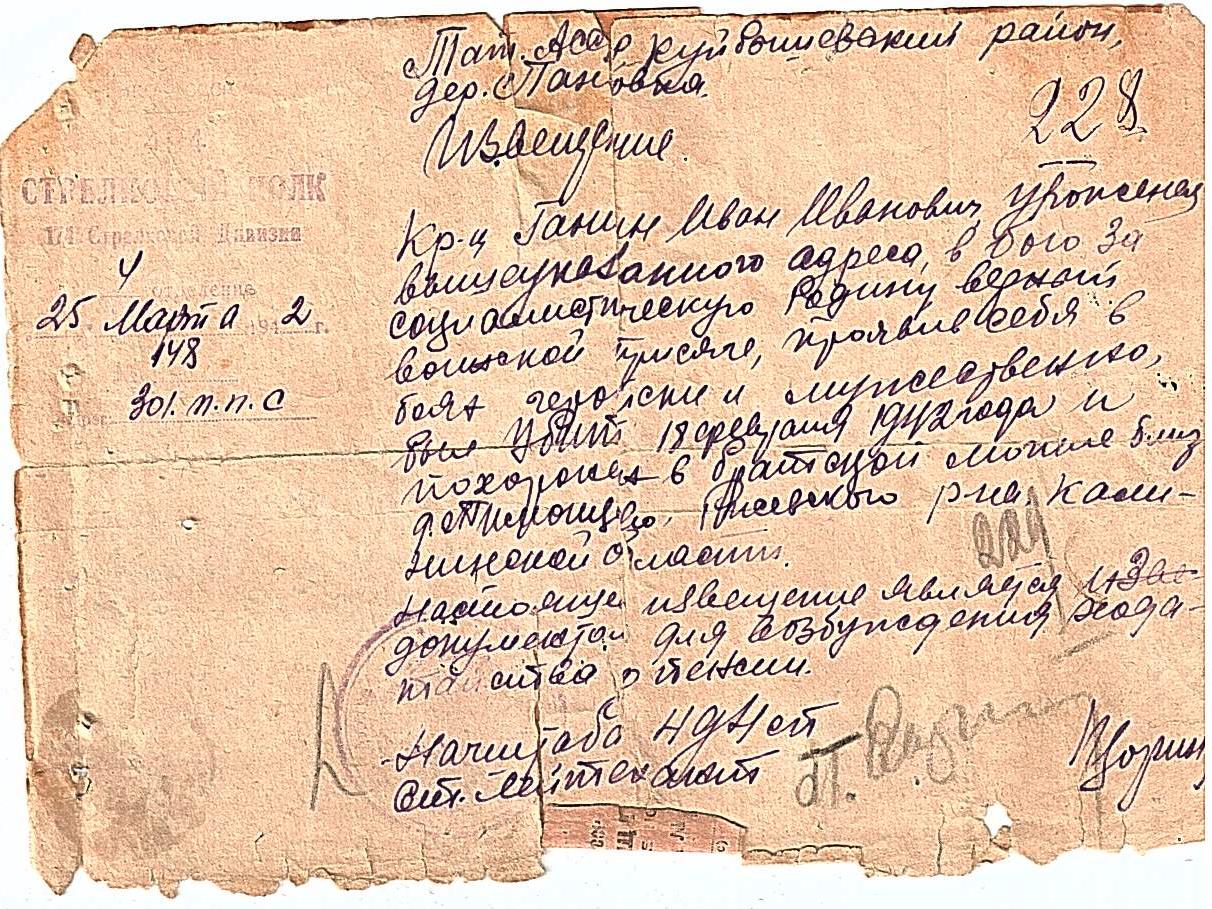 Тат. Асср Куйбышевский район,
дер. Пановка.
228
Извещение.
СТРЕЛКОВ ПОЛК
174 Стрелковой Дивизии
4 отделение
25 Марта 194 2 г.
148
301. п.п.с
Кр-ц Ганин Иван Иванович уроженец
вышеуказанного адреса, в бою за
социалистическую Родину верный
воинской присяге, проявив себя в
боях геройски и мужественно,
был убит 18 февраля 1942 года и
похоронен в братской могиле близ
Ржевского р-на Кали-
нинской области.
229
Настоящее извещение является
документом для возбуждения хода-
тайства о пенсии.
Начштаба 494 сп
Ст. Лейтенант
П.